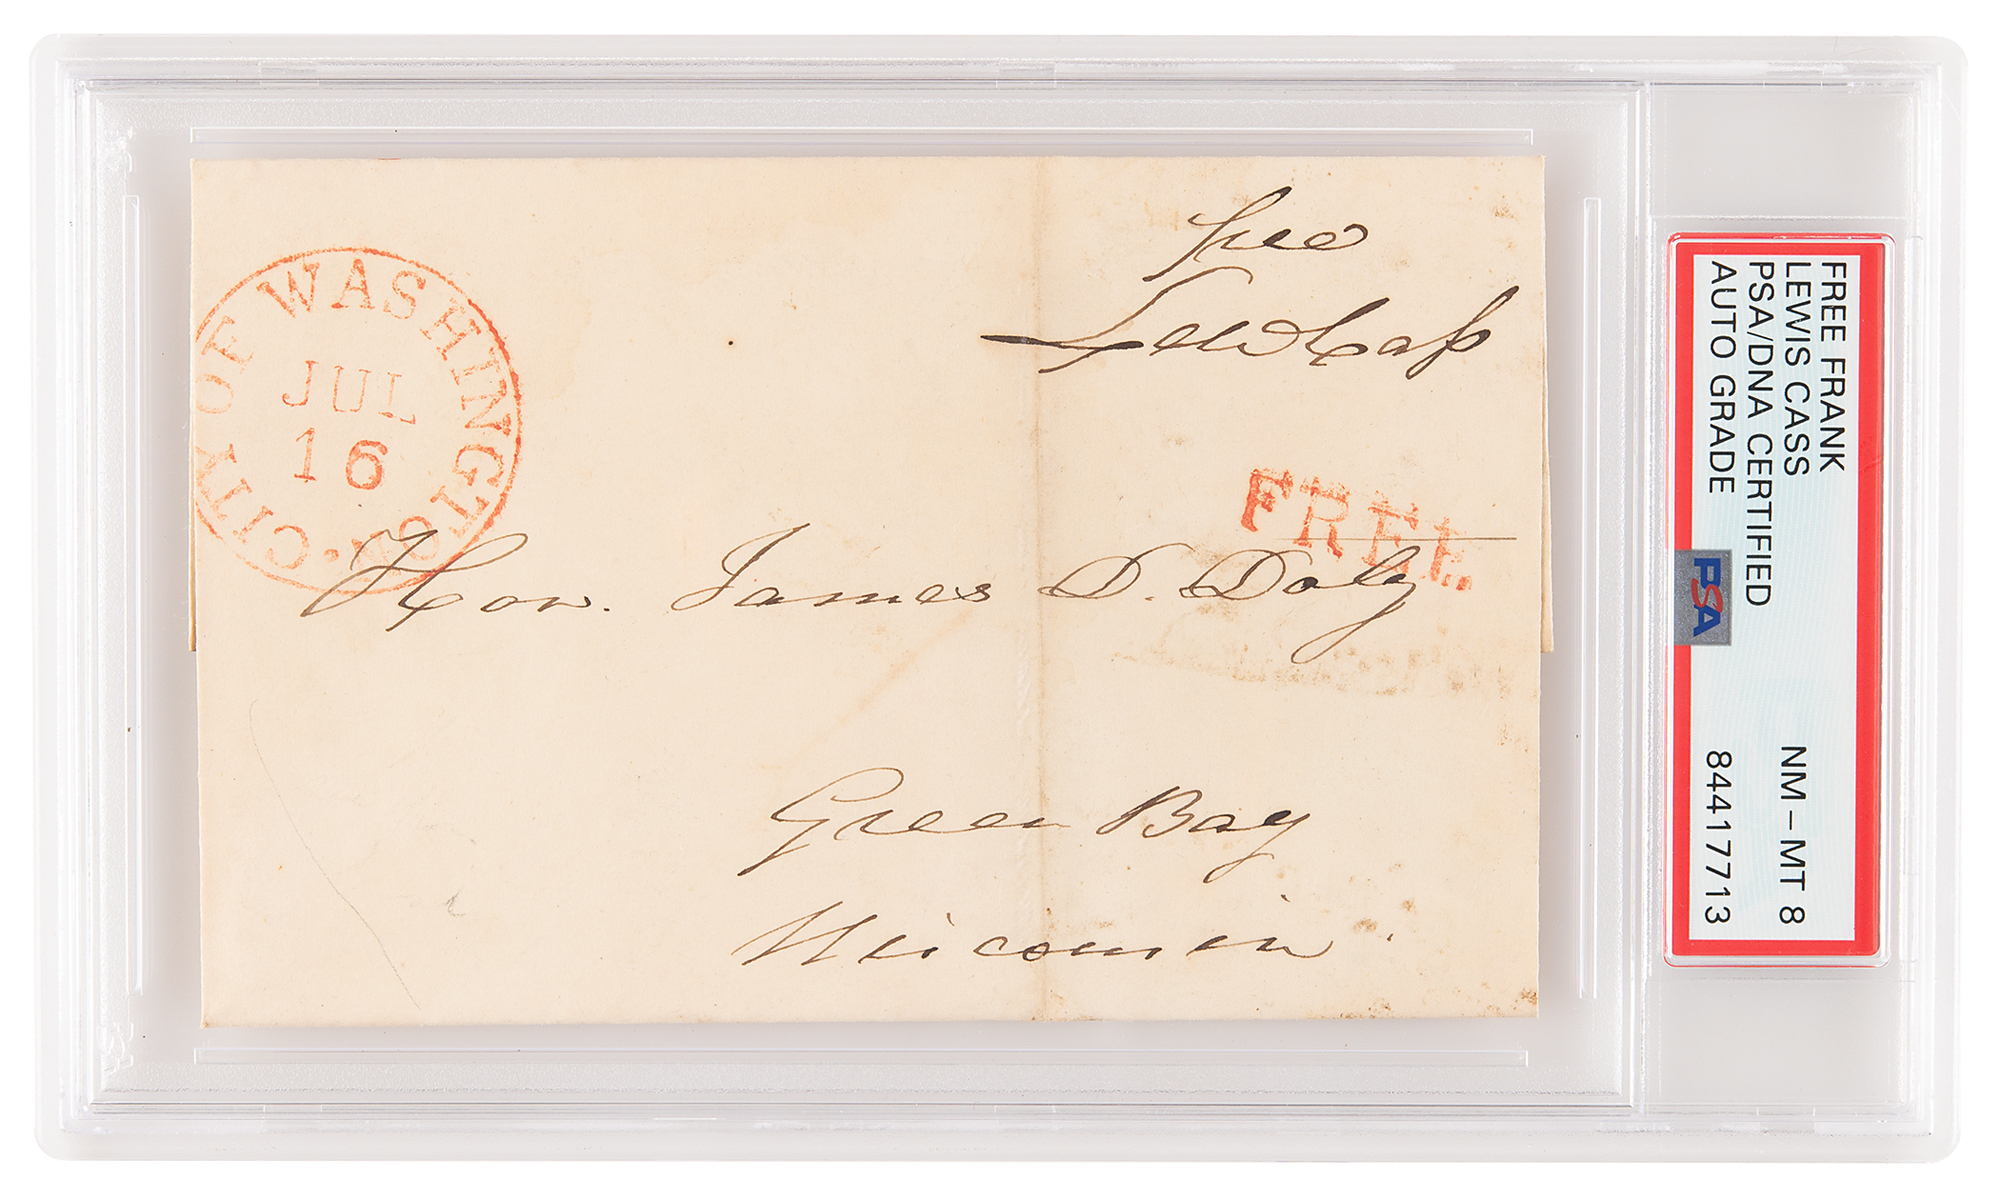 free
Lew Cass
CITY OF WASHINGTON
JUL
16
FREE.
Hon. James D. Doty
Green Bay
Wisconsin
FREE FRANK
LEWIS CASS
PSA/DNA CERTIFIED
AUTO GRADE
NM-MT 8
84417713
PSA